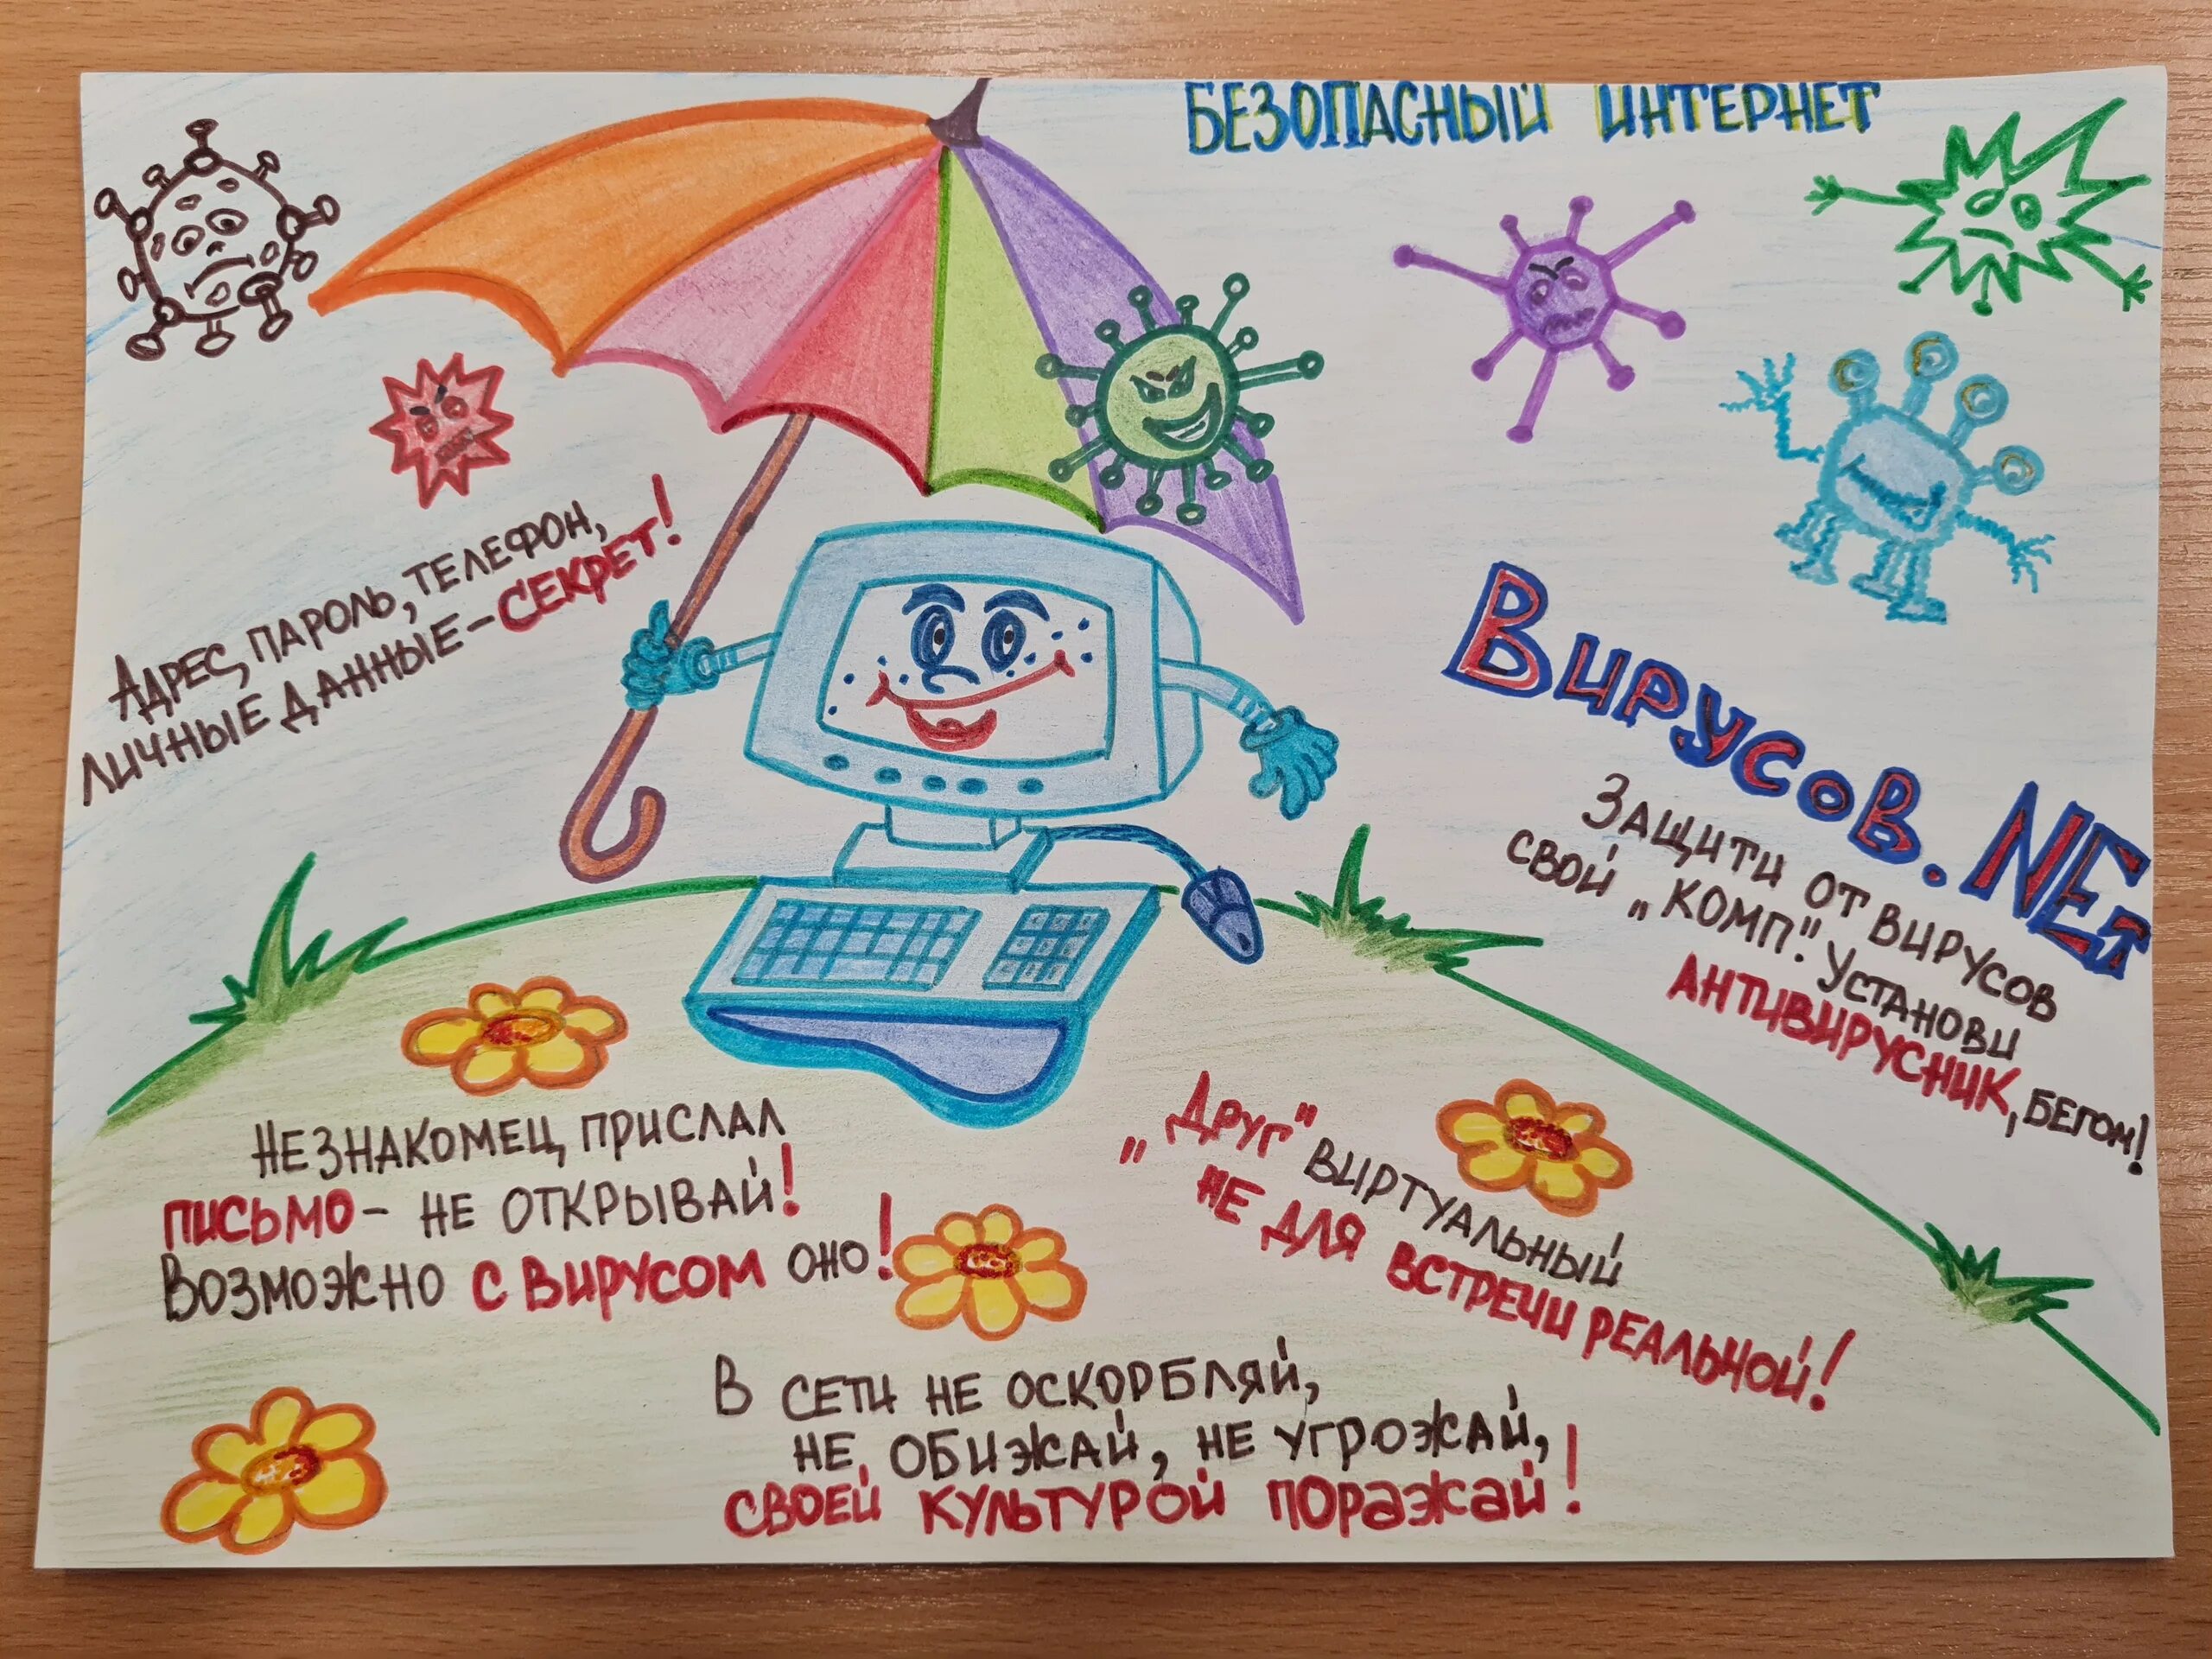 БЕЗОПАСНЫЙ ИНТЕРНЕТ
АДРЕС, ПАРОЛЬ, ТЕЛЕФОН,
ЛИЧНЫЕ ДАННЫЕ - СЕКРЕТ!
ВИРУСОВ.NET
ЗАЩИТИ ОТ ВИРУСОВ
СВОЙ „КОМП". УСТАНОВИ
АНТИВИРУСНИК, БЕГОМ!
НЕЗНАКОМЕЦ ПРИСЛАЛ
ПИСЬМО - НЕ ОТКРЫВАЙ!
ВОЗМОЖНО С ВИРУСОМ ОНО!
„ДРУГ" ВИРТУАЛЬНЫЙ
НЕ ДЛЯ ВСТРЕЧИ РЕАЛЬНОЙ!
В СЕТИ НЕ ОСКОРБЛЯЙ,
НЕ ОБИЖАЙ, НЕ УГРОЖАЙ,
СВОЕЙ КУЛЬТУРОЙ ПОРАЖАЙ!